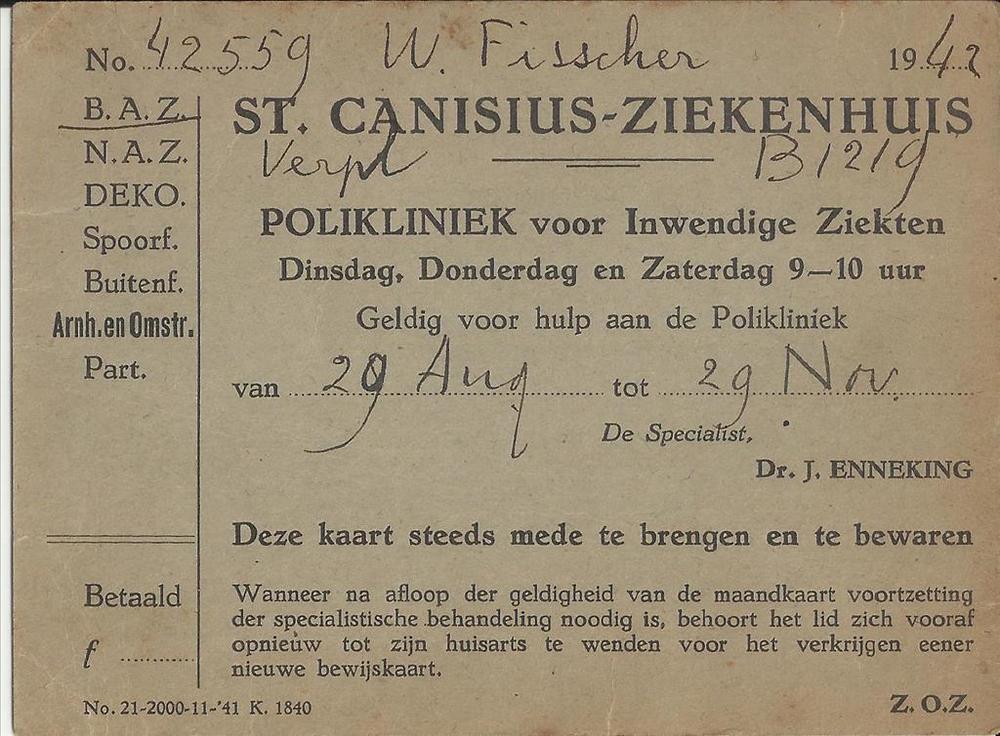 No. 42559 W. Fisscher 1942
B. A. Z.
N. A. Z.
DEKO.
Spoorf.
Buitenf.
Arnh. en Omstr.
Part.
Betaald
f ............
ST. CANISIUS-ZIEKENHUIS
Verpl B1219
POLIKLINIEK voor Inwendige Ziekten
Dinsdag, Donderdag en Zaterdag 9—10 uur
Geldig voor hulp aan de Polikliniek
van 29 Aug tot 29 Nov.
De Specialist,
Dr. J. ENNEKING
Deze kaart steeds mede te brengen en te bewaren
Wanneer na afloop der geldigheid van de maandkaart voortzetting
der specialistische behandeling noodig is, behoort het lid zich vooraf
opnieuw tot zijn huisarts te wenden voor het verkrijgen eener
nieuwe bewijskaart.
No. 21-2000-11-'41 K. 1840
Z. O. Z.